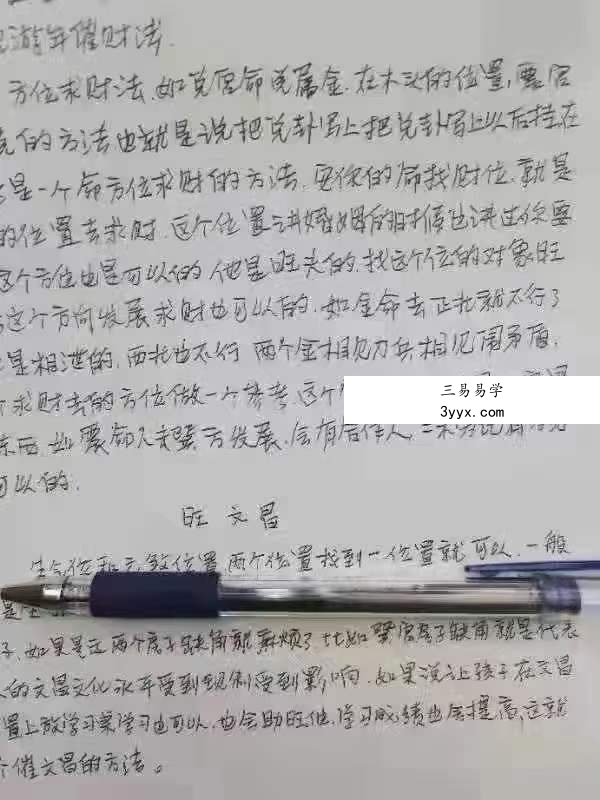 游年催财法.
方位求财法.如兑宫命兑属金.在木头的位置,要
的方法,也就是说把兑卦写上把兑卦写上以后挂在
是一个命方位求财的方法.要你的命找财位.就是
的位置去求财.这个位置讲婚姻的时候也讲过你要
这个方位也是可以的,他是旺夫的.找这个位的对象旺
这个方向发展求财也可以的.如金命去正北就不行了
是相泄的.西北也不行 两个金相见刀兵相见闹矛盾.
求财去的方位做一个参考.这个
三易易学
3yyx.com
东西.如震命人去巽方发展.会有合作人.
可以的.
旺 文昌
位和 位置 两个位置找到一位置就可以.一般
是
子.如果是这两个房子缺角就麻烦了 比如巽宫房子缺角就是代表
人的文昌文化水平受到规制受到影响.如果说让孩子在文昌
置上放学习桌学习也可以.也会助旺他.学习成绩也会提高,这就
个催文昌的方法。